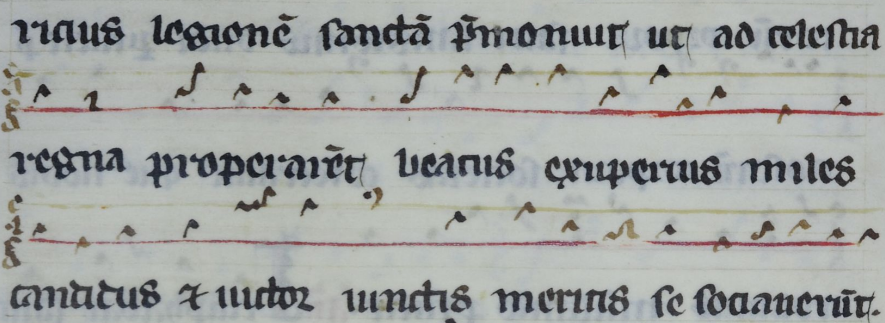 ricius legionē sanctā p̄monuit ut ad celestia
regna properarēt beatus exuperius miles
candidus ⁊ uictor iunctis meritis se sociauerūt.